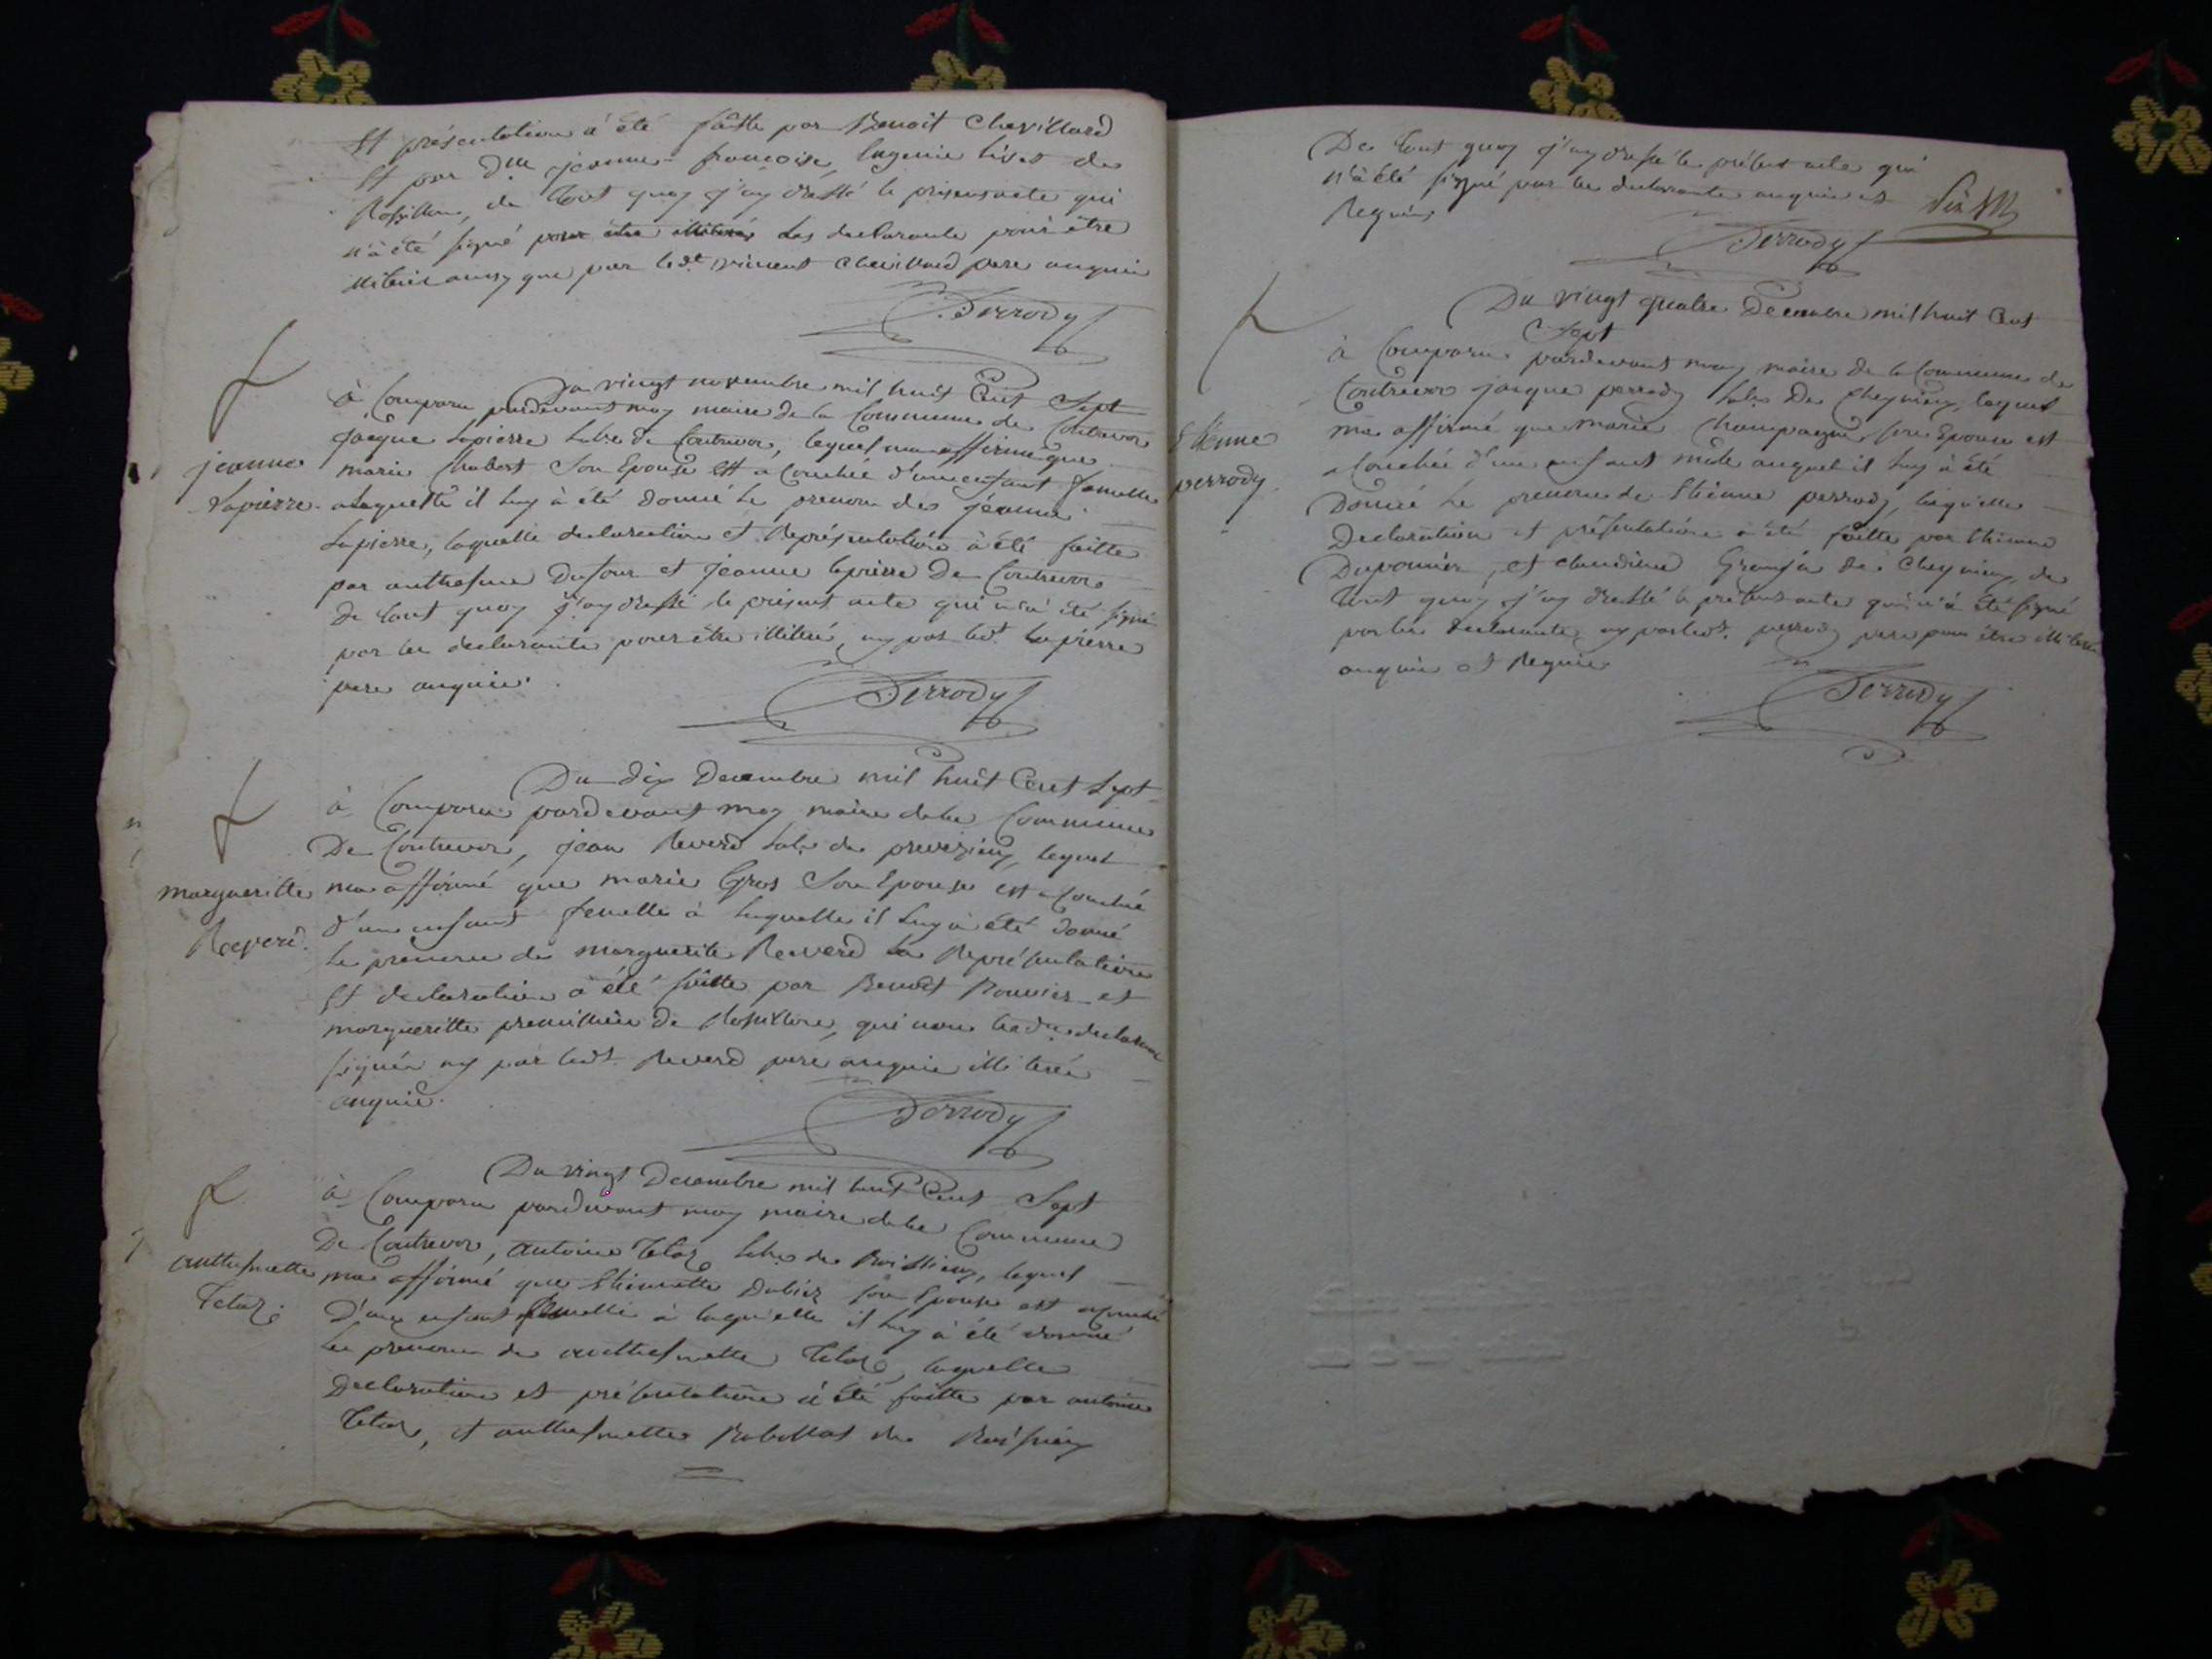 Et présentation à été faitte par Benoit Chevillard
Et par Dlle jeanne françoise Eugenie livet de
Rossillon, de tout quoy j'ay dressé le présent acte qui
n'à été signé les declarants pour être
illiteré ausy que par led.t vincent chevillard pere enquis
Perrody
Du vingt novembre mil huit Cent Sept
à Comparu pardevant moy maire de la Commune de Contrevoz
Jacque Lapierre Lab.r de Contrevoz, lequel m'a affirmé que
jeanne
marie Chabert Son Epouse est acouchée d'une enfant femelle
Lapierre.
alaquelle il luy à été donné le prenom de jeanne
Lapierre, laquelle declaration et Représentation à été faitte
par anthelme Dufour et jeanne lapierre De Contrevoz
De tout quoy j'ay dressé le présent acte qui n'a été signé
par les declarants pour être illiteré, ny par led.t Lapierre
pere enquis.
Perrody
Du dix Decembre mil huit Cent Sept
à Comparu pardevant moy maire de la Commune
De Contrevoz, jean Reverd Lab.r de preveyzieu, lequel
margueritte
m'a affirmé que marie Gros Son Epouse est acouché
Reverd.
d'une enfant femelle à laquelle il luy à été donné
Le prenom de marguerite Reverd La Représentation
Et declaration à été faitte par Benoit Bouvier et
margueritte premillieu De Rossillon, qui nont lesd.ts declarant
signés ny par led.t Reverd pere enquis illiterés
enquis.
Perrody
Du vingt Decembre mil huit Cent Sept
à Comparu pardevant moy maire de la Commune
De Contrevoz, antoine Tetaz Lab.r de Boissieu, lequel
anthelmette
m'a affirmé que Etiennette Dubiez son Epouse est acouché
Tetaz.
D'une enfant femelle à laquelle il luy à été donné
Le prenom de anthelmette Tetaz, laquelle
Declaration et présentation à été faitte par antoine
Tetaz, et anthelmette de Boissieu
De tout quoy j'ay dressé le présent acte qui
n'à été signé par les declarants enquis et
Requis
Perrody
Du vingt quatre Decembre mil huit Cent
Sept
à Comparu pardevant moy maire de la Commune de
Contrevoz jacque perrody Lab.r De Cheynieu, lequel
m'a affirmé que marie Champagne son Epouse est
Etienne
acouchée d'un enfant mâle auquel il luy à été
perrody
Donné le prenom de Etienne perrody, laquelle
Declaration et présentation à été faitte par Etienne
Duponnier, et claudine de Cheynieu, de
tout quoy j'ay dressé le présent acte qui n'à été signé
par les declarants ny par led.t perrody pere pour être illiteré
enquis et Requis
Perrody